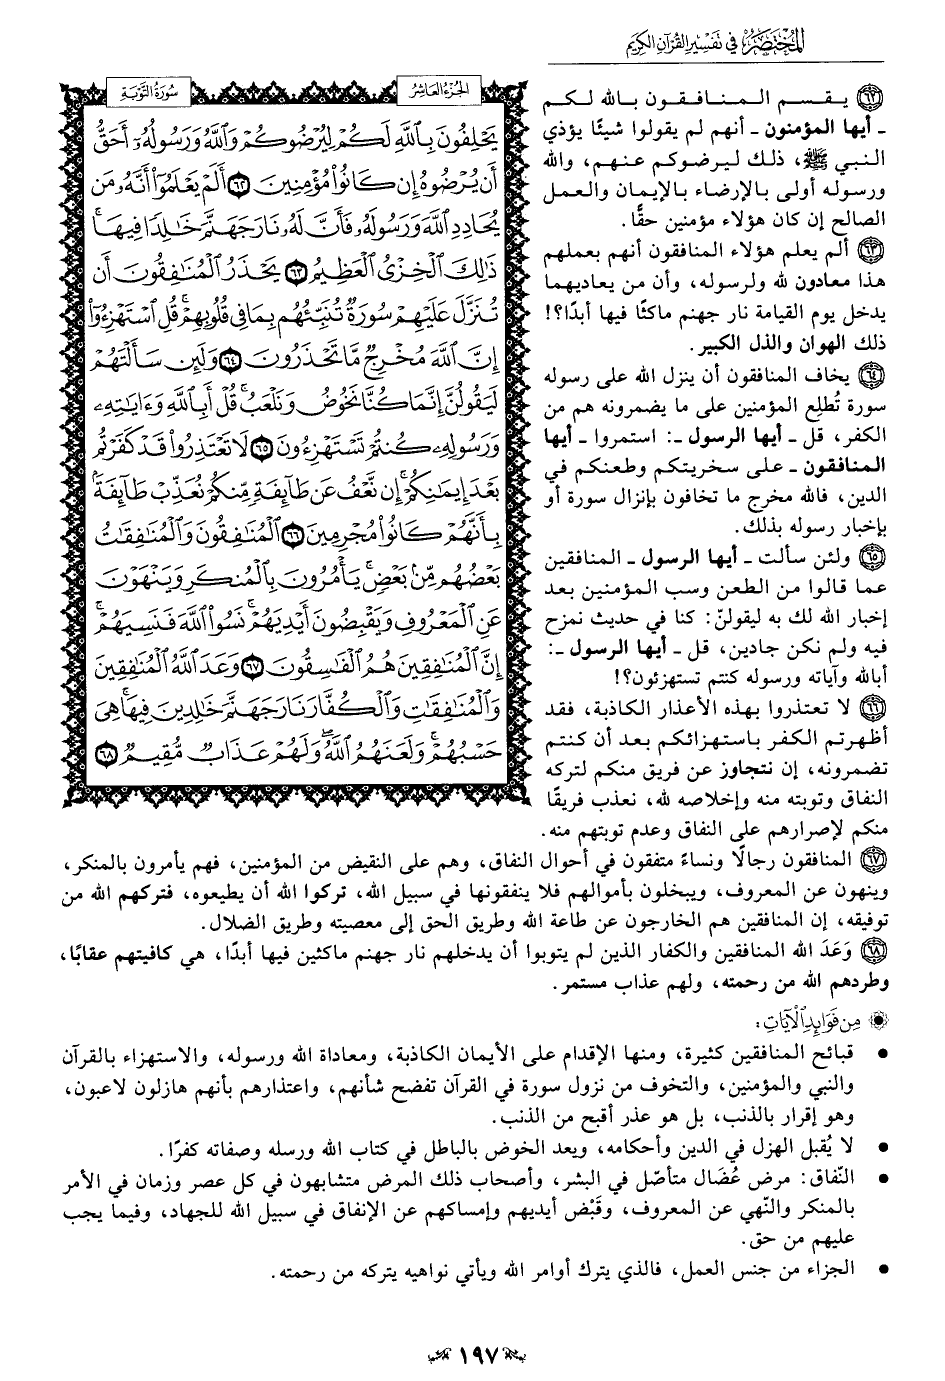 المختصر في تفسير القرآن الكريم
سورة التوبة
الجزء العاشر
يَحْلِفُونَ بِٱللَّهِ لَكُمْ لِيُرْضُوكُمْ وَٱللَّهُ وَرَسُولُهُۥٓ أَحَقُّ
أَن يُرْضُوهُ إِن كَانُوا۟ مُؤْمِنِينَ ٦٢ أَلَمْ يَعْلَمُوٓا۟ أَنَّهُۥ مَن
يُحَادِدِ ٱللَّهَ وَرَسُولَهُۥ فَأَنَّ لَهُۥ نَارَ جَهَنَّمَ خَٰلِدًا فِيهَا ۚ
ذَٰلِكَ ٱلْخِزْىُ ٱلْعَظِيمُ ٦٣ يَحْذَرُ ٱلْمُنَٰفِقُونَ أَن
تُنَزَّلَ عَلَيْهِمْ سُورَةٌ تُنَبِّئُهُم بِمَا فِى قُلُوبِهِمْ ۚ قُلِ ٱسْتَهْزِءُوٓا۟
إِنَّ ٱللَّهَ مُخْرِجٌ مَّا تَحْذَرُونَ ٦٤ وَلَئِن سَأَلْتَهُمْ
لَيَقُولُنَّ إِنَّمَا كُنَّا نَخُوضُ وَنَلْعَبُ ۚ قُلْ أَبِٱللَّهِ وَءَايَٰتِهِۦ
وَرَسُولِهِۦ كُنتُمْ تَسْتَهْزِءُونَ ٦٥ لَا تَعْتَذِرُوا۟ قَدْ كَفَرْتُم
بَعْدَ إِيمَٰنِكُمْ ۚ إِن نَّعْفُ عَن طَآئِفَةٍ مِّنكُمْ نُعَذِّبْ طَآئِفَةًۢ
بِأَنَّهُمْ كَانُوا۟ مُجْرِمِينَ ٦٦ ٱلْمُنَٰفِقُونَ وَٱلْمُنَٰفِقَٰتُ
بَعْضُهُم مِّنۢ بَعْضٍ ۚ يَأْمُرُونَ بِٱلْمُنكَرِ وَيَنْهَوْنَ
عَنِ ٱلْمَعْرُوفِ وَيَقْبِضُونَ أَيْدِيَهُمْ ۚ نَسُوا۟ ٱللَّهَ فَنَسِيَهُمْ ۗ
إِنَّ ٱلْمُنَٰفِقِينَ هُمُ ٱلْفَٰسِقُونَ ٦٧ وَعَدَ ٱللَّهُ ٱلْمُنَٰفِقِينَ
وَٱلْمُنَٰفِقَٰتِ وَٱلْكُفَّارَ نَارَ جَهَنَّمَ خَٰلِدِينَ فِيهَا ۚ هِىَ
حَسْبُهُمْ ۚ وَلَعَنَهُمُ ٱللَّهُ ۖ وَلَهُمْ عَذَابٌ مُّقِيمٌ ٦٨
٦٢ يقسم المنافقون بالله لكم
ـ أيها المؤمنون ـ أنهم لم يقولوا شيئًا يؤذي
النبي ﷺ، ذلك ليرضوكم عنهم، والله
ورسوله أولى بالإرضاء بالإيمان والعمل
الصالح إن كان هؤلاء مؤمنين حقًّا.
٦٣ ألم يعلم هؤلاء المنافقون أنهم بعملهم
هذا معادون لله ولرسوله، وأن من يعاديهما
يدخل يوم القيامة نار جهنم ماكثًا فيها أبدًا؟!
ذلك الهوان والذل الكبير.
٦٤ يخاف المنافقون أن ينزل الله على رسوله
سورة تُطلِع المؤمنين على ما يضمرونه هم من
الكفر، قل ـ أيها الرسول ـ: استمروا ـ أيها
المنافقون ـ على سخريتكم وطعنكم في
الدين، فالله مخرج ما تخافون بإنزال سورة أو
بإخبار رسوله بذلك.
٦٥ ولئن سألت ـ أيها الرسول ـ المنافقين
عما قالوا من الطعن وسب المؤمنين بعد
إخبار الله لك به ليقولنّ: كنا في حديث نمزح
فيه ولم نكن جادين، قل ـ أيها الرسول ـ:
أبالله وآياته ورسوله كنتم تستهزئون؟!
٦٦ لا تعتذروا بهذه الأعذار الكاذبة، فقد
أظهرتم الكفر باستهزائكم بعد أن كنتم
تضمرونه، إن نتجاوز عن فريق منكم لتركه
النفاق وتوبته منه وإخلاصه لله، نعذب فريقًا
منكم لإصرارهم على النفاق وعدم توبتهم منه.
٦٧ المنافقون رجالًا ونساءً متفقون في أحوال النفاق، وهم على النقيض من المؤمنين، فهم يأمرون بالمنكر،
وينهون عن المعروف، ويبخلون بأموالهم فلا ينفقونها في سبيل الله، تركوا الله أن يطيعوه، فتركهم الله من
توفيقه، إن المنافقين هم الخارجون عن طاعة الله وطريق الحق إلى معصيته وطريق الضلال.
٦٨ وَعَدَ الله المنافقين والكفار الذين لم يتوبوا أن يدخلهم نار جهنم ماكثين فيها أبدًا، هي كافيتهم عقابًا،
وطردهم الله من رحمته، ولهم عذاب مستمر.
من فوائد الآيات:
• قبائح المنافقين كثيرة، ومنها الإقدام على الأيمان الكاذبة، ومعاداة الله ورسوله، والاستهزاء بالقرآن
والنبي والمؤمنين، والتخوف من نزول سورة في القرآن تفضح شأنهم، واعتذارهم بأنهم هازلون لاعبون،
وهو إقرار بالذنب، بل هو عذر أقبح من الذنب.
• لا يُقبل الهزل في الدين وأحكامه، ويعد الخوض بالباطل في كتاب الله ورسله وصفاته كفرًا.
• النّفاق: مرض عُضَال متأصّل في البشر، وأصحاب ذلك المرض متشابهون في كل عصر وزمان في الأمر
بالمنكر والنّهي عن المعروف، وقَبْض أيديهم وإمساكهم عن الإنفاق في سبيل الله للجهاد، وفيما يجب
عليهم من حق.
• الجزاء من جنس العمل، فالذي يترك أوامر الله ويأتي نواهيه يتركه من رحمته.
١٩٧